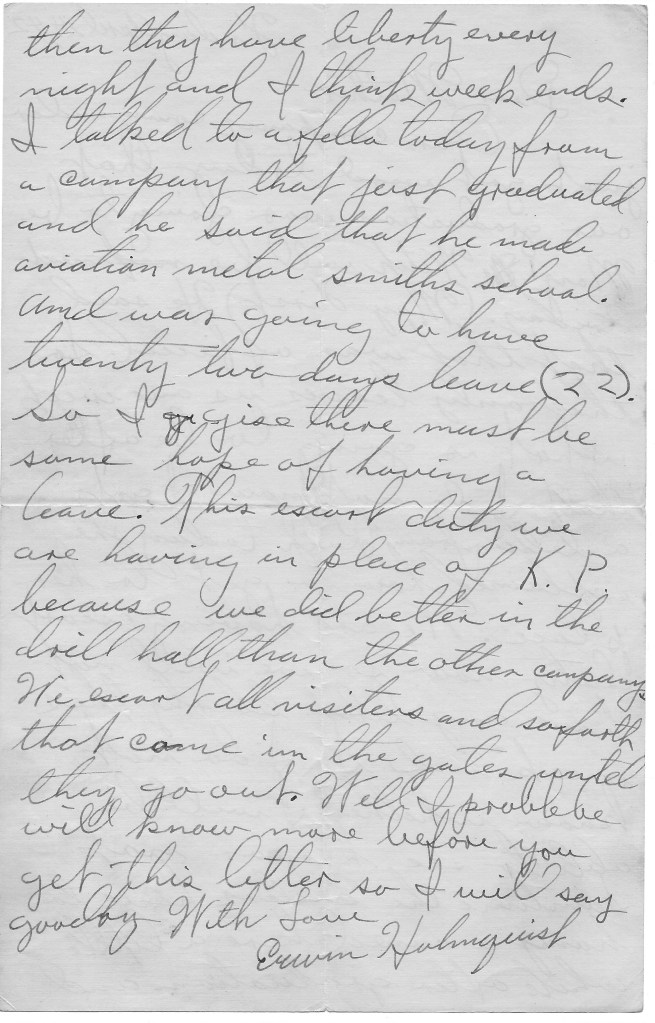 then they have liberty every
night and I think week ends.
I talked to a fella today from
a company that just graduated
and he said that he made
aviation metal smiths school.
and was going to have
twenty two days leave (22).
So I gise there must be
some hope of having a
leave. This escort duty we
are having in place of K. P.
because we did better in the
drill hall than the other companys
We escort all visiters and so forth
that come in the gates until
they go out. Well I probbebe
will know more before you
get this letter so I will say
goodby With Love
Erwin Holmquist